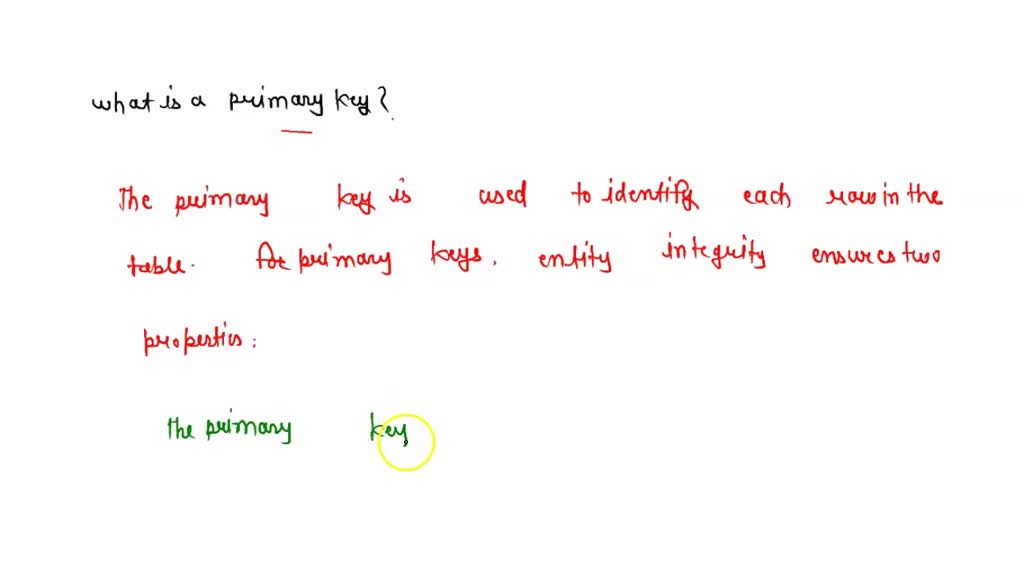 what is a primary key?
The primary key is used to identify each row in the
table. For primary keys, entity integrity ensures two
properties:
The primary key